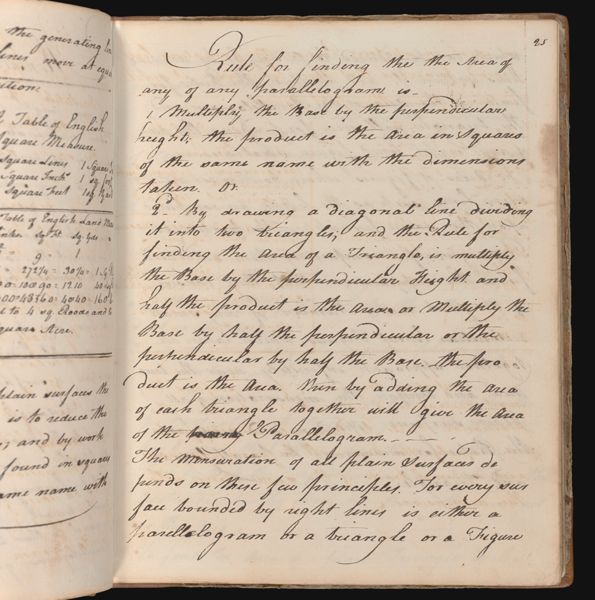 the generating
lines move at equa
Table of English
Square Measure.
Square Lines 1 Square
Square Inchs 1 sq foot
Square Feet 1 sq Yard
Table of English Land
Sq. Ft Sq. Yds
9 1
272¼ = 30¼ =
10890 = 1210 40
43560 = 4840 = 160
to 4 sq. Roods and
Square Acre.
plain surfaces the
is to reduce the
and by work
found in squares
same name with
25
Rule for finding the the Area of
any of any parallelogram is
1 Multiply the Base by the perpendicular
height; the product is the Area in Squares
of the same name with the dimensions
taken. Or
2d By drawing a diagonal line dividing
it into two triangles; and the Rule for
finding the Area of a Triangle, is multiply
the Base by the perpendicular Height and
half the product is the Area or Multiply the
Base by half the perpendicular or the
perpendicular by half the Base. the pro
duct is the Area. then by adding the Area
of each triangle together will give the Area
of the Parallelogram.
The Mensuration of all plain Surfaces de
pends on these few principles. For every sur
face bounded by right lines is either a
parellelogram or a triangle or a Figure